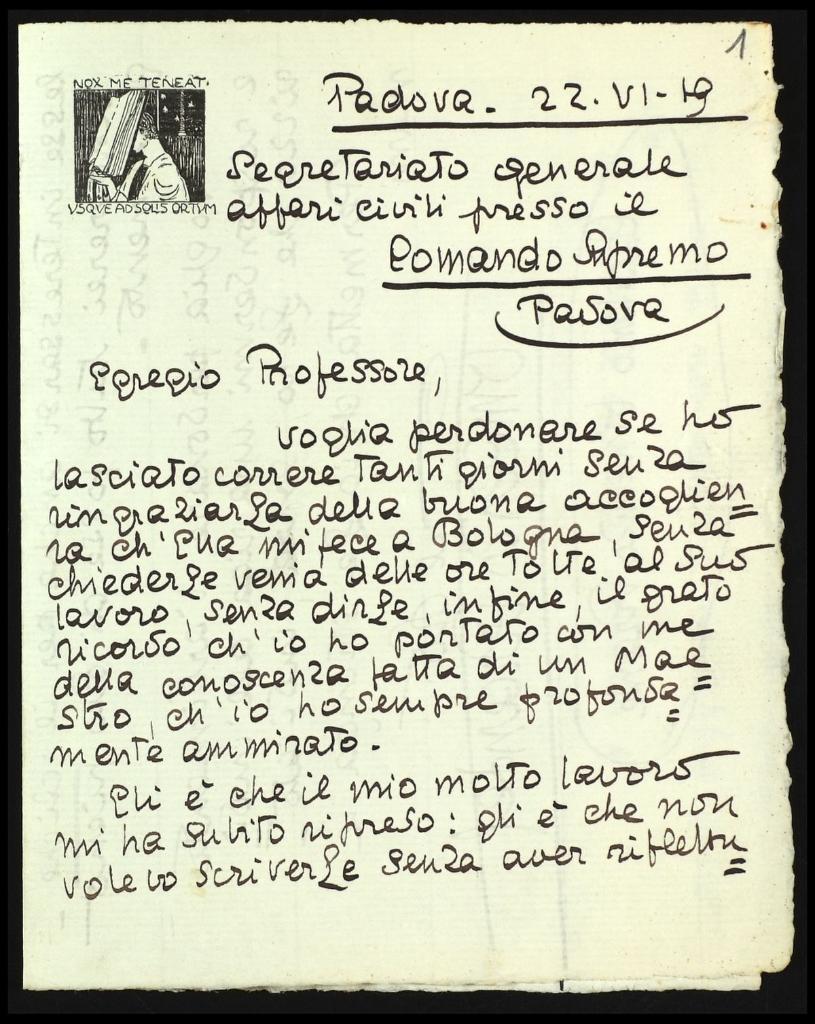 1
NOX ME TENEAT.
VSQVE AD SOLIS ORTVM
Padova. 22.VI-19
Segretariato generale
affari civili presso il
Comando Supremo
Padova
Egregio Professore,
voglia perdonare se ho
lasciato correre tanti giorni senza
ringraziarLa della buona accoglien=
za ch'Ella mi fece a Bologna, senza
chiederLe venia delle ore tolte al Suo
lavoro, senza dirLe, infine, il grato
ricordo ch'io ho portato con me
della conoscenza fatta di un Mae=
stro, ch'io ho sempre profonda=
mente ammirato.
Gli è che il mio molto lavoro
mi ha subito ripreso: gli è che non
volevo scriverLe senza aver riflettu=